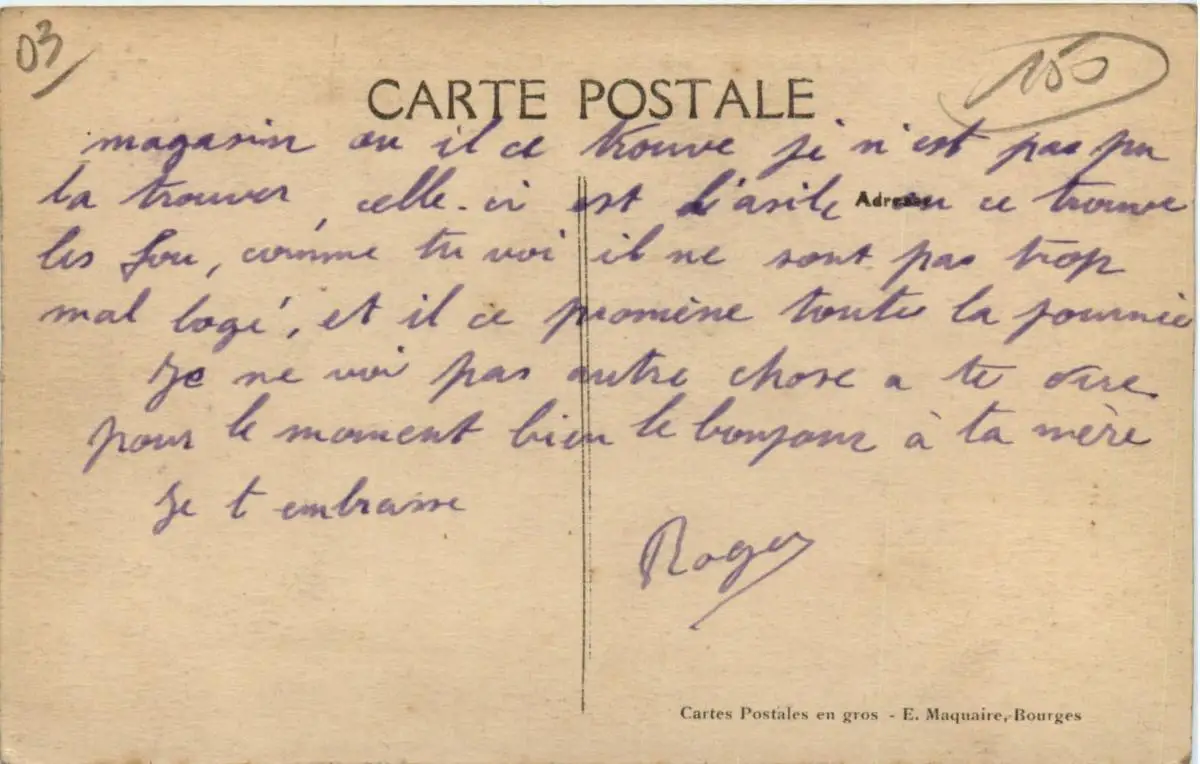 03
150
CARTE POSTALE
magasin ou il ce trouve je n'est pas pu
la trouver, celle-ci est l'asile ou ce trouve
Adresse
les fou, comme tu voi il ne sont pas trop
mal logé, et il ce promène toute la journée
Je ne voi pas autre chose a te dire
pour le moment bien le bonjour à ta mère
Je t embrasse
Roger
Cartes Postales en gros - E. Maquaire, Bourges